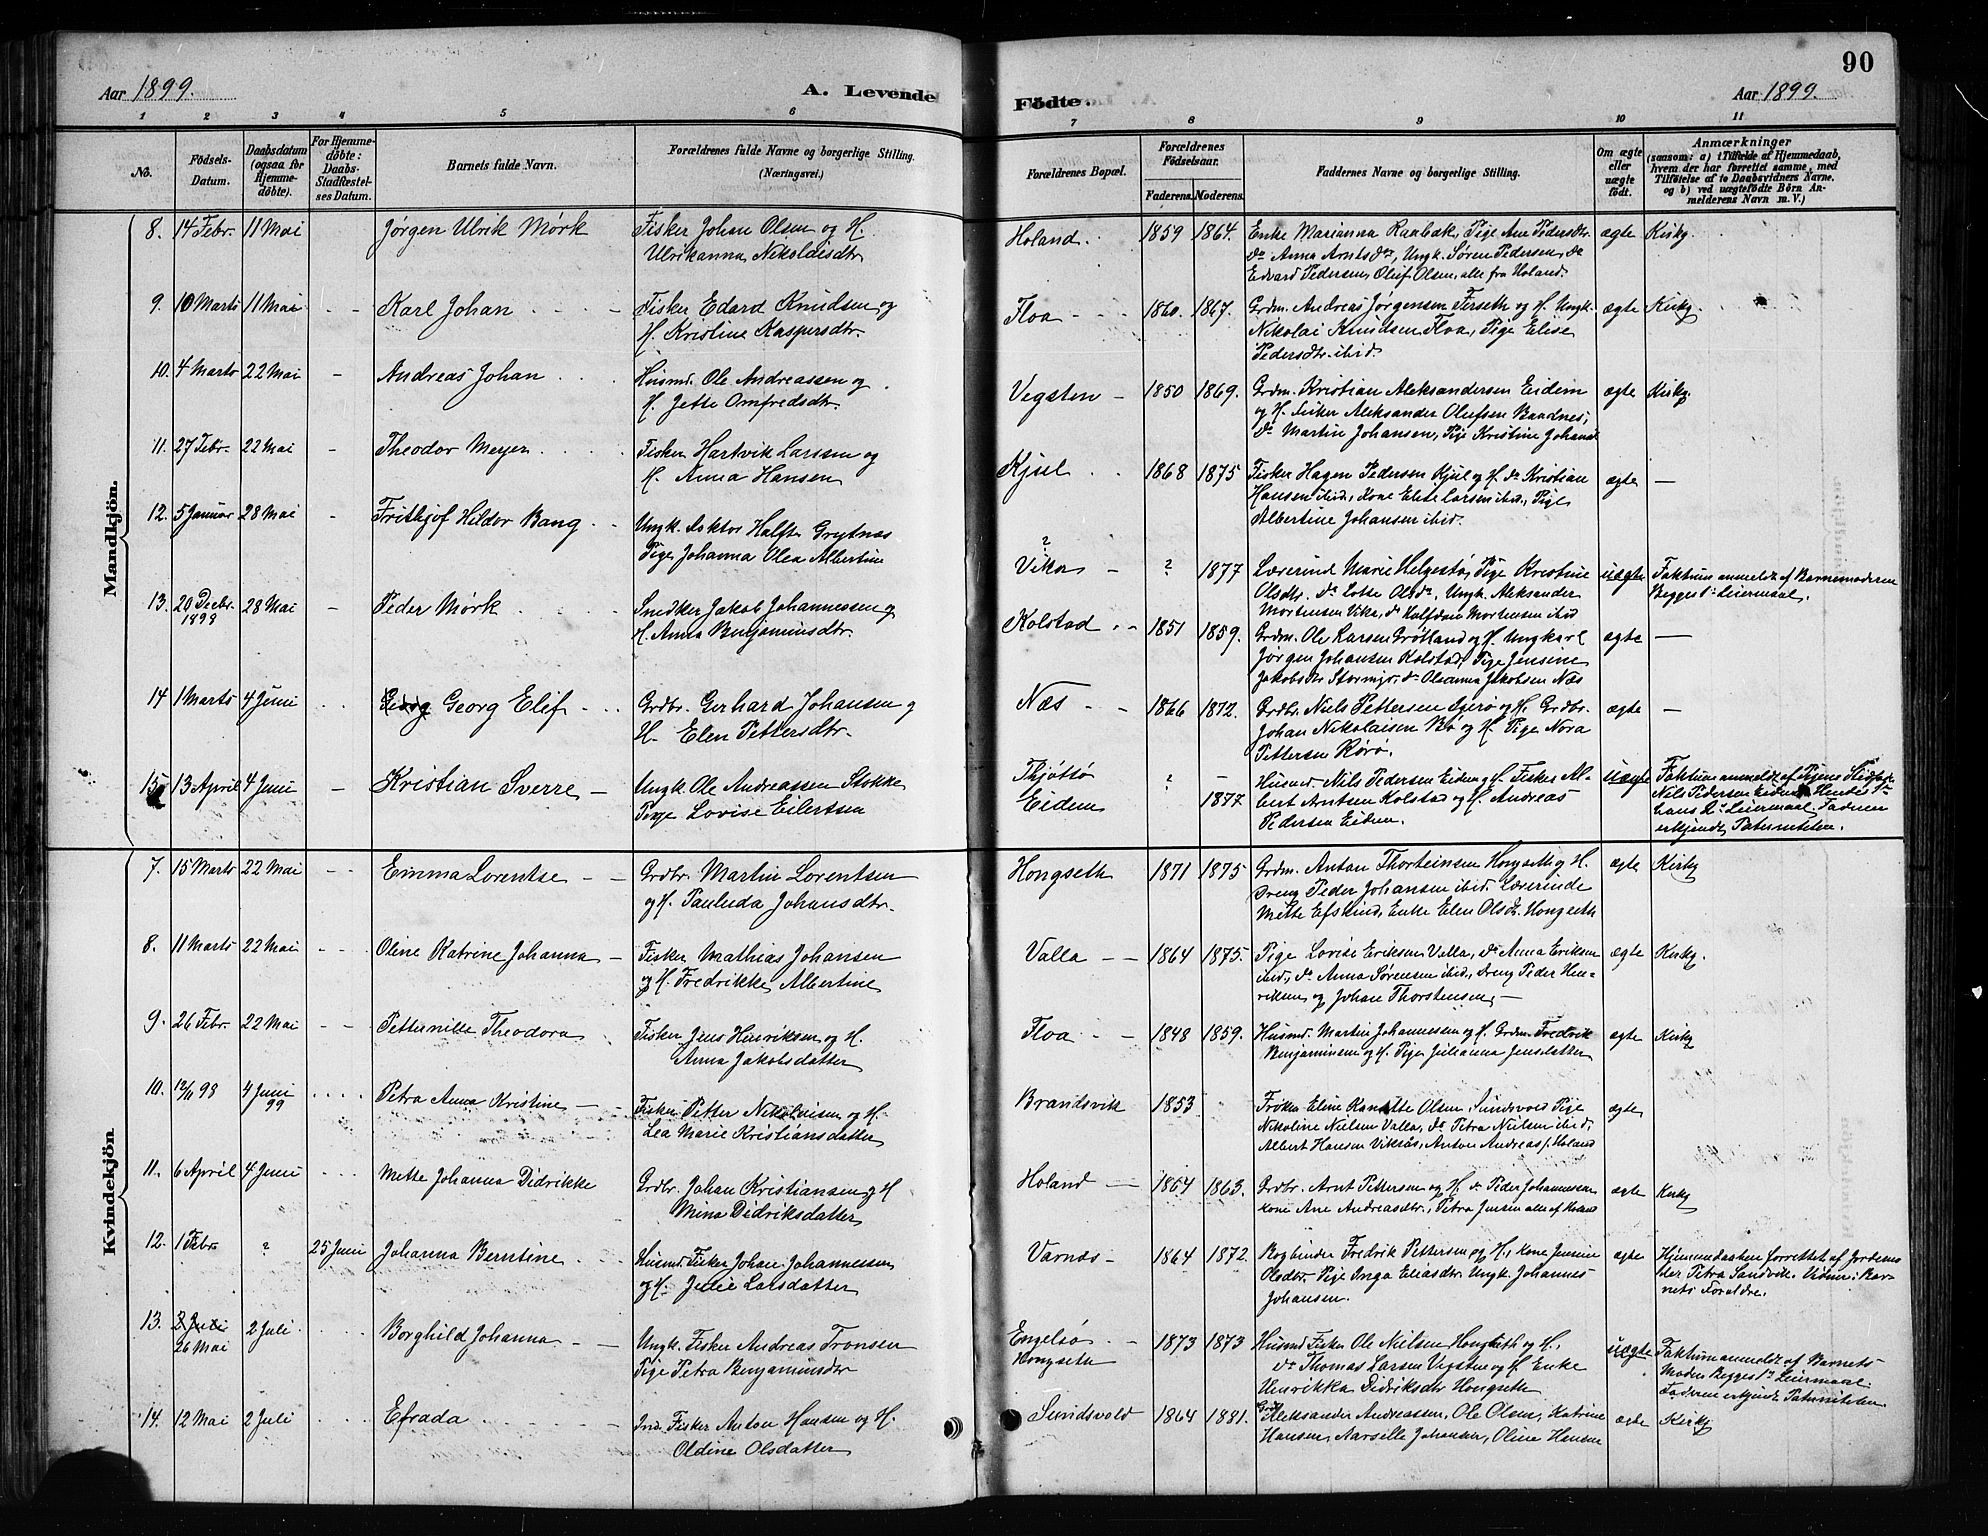 Aar 1899.
A. Levende
1 2 3 4 5 6
No.
Födsels-
Datum.
Daabsdatum
(ogsaa for
Hjemme-
döbte).
For Hjemme-
döbte:
Daabs-
Stadfæstel-
ses Datum.
Barnets fulde Navn.
Forældrenes fulde Navne og borgerlige Stilling.
(Næringsvei.)
Mandkjön.
8. 14 Febr. 11 Mai Jørgen Ulrik Mørk Fisker Johan Olsen og H.
Ulrikanna Nikolaisdtr
9. 10 Marts 11 Mai Karl Johan Fisker Edard Knudsen og
H. Kristine Kaspersdtr.
10. 4 Marts 22 Mai Andreas Johan Husmd. Ole Andreassen og
H. Jette Omfredsdtr.
11. 27 Febr. 22 Mai Theodor Meyer Fisker Hartvik Larssen og
H. Anna Hansen
12. 5 Januar 28 Mai Frithjof Hildor Bang Ungk. Halft Grytnæs
Pige Johanna Olea Albertine
13. 20 Decbr. 28 Mai Peder Mørk Snedker Jakob Johannessen og
1898 H. Anna Benjaminsdtr.
14 1 Marts 4 Juni Georg Elif Grdbr. Gerhard Johansen og
H. Elen Pettersdtr.
15 13 April 4 Juni Kristian Sverre Ungk. Ole Andreassen Stokke
Pige Lovise Eilertsen
Kvindekjön.
7. 15 Marts 22 Mai Emma Lorentse Grdbr. Martin Lorentsen
og H. Paulida Johansdtr.
8. 11 Marts 22 Mai Oline Katrine Johanna Fisker Mathias Johansen
og H. Fredrikke Albertine
9. 26 Febr. 22 Mai Petternille Theodora Fisker Jens Henriksen og H.
Anna Jakobsdatter
10. 12/11 98 4 Juni Petra Anna Kristine Fisker Petter Nikolaisen og H.
99 Lea Marie Kristiansdatter
11. 6 April 4 Juni Mette Johanna Didrikke Grdbr. Johan Kristiansen og H
Mina Didriksdatter
12. 1 Febr ? 25 Juni Johanna Berntine Husmd. Fisker Johan Johannessen
og H. Julie Larsdatter
13. 2 Juli 2 Juli Borghild Johanna Ungk. Fisker Andreas Tronsen
26 Mai Pige Petra Benjaminsdtr
14. 12 Mai 2 Juli Efrada Ind. Fisker Anton Hansen og H.
Oldine Olsdatter
90
Födte.
Aar 1899.
7 8 9 10 11
Forældrenes Bopæl.
Forældrenes
Födselsaar.
Faderens. Moderens.
Faddernes Navne og borgerlige Stilling.
Om ægte
eller
uægte
födt.
Anmærkninger
(saasom: a) i Tilfælde af Hjemmedaab,
hvem der har forrettet samme, med
Tilföielse af to Daabsvidners Navne.
og b) ved uægtefödte Börn An-
melderens Navn m. V.)
Holand 1859 1864. Enke Marianna Raabak, Pige Ane Pedersdtr. ægte Kirkg.
do Anna Arntsdtr, Ungk. Søren Pedersen, do
Edvard Pedersen, Oluf Olsen, alle fra Holand.
Floa 1860. 1867. Grdm. Andreas Jørgensen Forseth og H. Ungk. ægte Kirkg.
Nikolai Knudsen Floa, Pige Elise
Pedersdtr. ibid.
Vegsten 1850 1869. Grdm. Kristian Aleksandersen Eidem ægte Kirkg.
og H. Fisker Aleksander Olufsen Baadnes,
do Martin Johansen, Pige Kristine Johans
Kjul 1868 1875 Fisker Hagen Pedersen Kjul og H. do Kristian ægte —
Hansen ibid, Kone Elise Larsen ibid, Pige
Albertine Johansen ibid.
?
Vika ? 1877 Lærerind Marie Helgestø, Pige Kristine uægte Faktum anmeldt af Barnemoderen
Olsdtr. do Lotte Olsdtr. Ungk. Aleksander Begges 1. Leiermaal.
Mortensen Vika, do Halfdan Mortensen ibid
Kolstad 1851 1859. Grdm. Ole Larsen Grötland og H. Ungkarl ægte —
Jørgen Johansen Kolstad, Pige Jensine
Jakobsdtr, do Oleanna Jakobsen Næs
Næs 1866 1872. Grdbr. Niels Pettersen og H. Grdbr. ægte —
Johan Nikolaisen Bø og H. Pige Nora
Pettersen Rørø.
Thjøttø ? — Husmd. Nils Pedersen Eidem og H. Fisker Al- uægte Faktum anmeldt af Pigens
Eidem 1877 bert Antsen Kolstad og H. Andreas Nils Pedersen Eidem Hendes 1ste
Pedersen Eidem. hans 2. Leiermaal. Faderen
erkjendt Paterniteten.
Hongseth 1871 1875 Grdm. Anton Thorteinsen Hongseth og H. ægte Kirkg
Dreng Peder Johansen ibid. Lærerinde
Mette Efskind, Enke Elen Olsdtr. Hongseth
Valla 1864 1875. Pige Lovise Eriksen Valla, do Anna Eriksen ægte Kirkg.
ibid, do Anna Sørensen ibid, Dreng Peder Hen-
riksen og Johan Thorstensen
Floa 1848 1859. Husmd. Martin Johannesen og H. Grdm. Fredrik ægte Kirkg
Benjaminsen og H. Pige Julianna Jensdatter
Brandsvik 1853 Frøken Eline Olsen, Sundsvold Pige ægte
Nikoline Nielsen Valla, do Petra Nielsen ibid,
Albert Hansen Viksås, Anton Andreas Holand
Holand 1864 1863. Grdbr. Arnt Pettersen og H. do Peder Johannessen ægte Kirkg
Kone Ane Andreasdtr., Petra Jensen alle af Holand
Varnæs 1864 1872. Bogbinder Fredrik Pettersen og H., Kone Jensine ægte Hjemmedaaben forrettet af Jordemo-
Olsdtr. Pige Inga Eliasdtr. Ungk. Johannes der Petra Sandvik. Vidner: Bar-
Johansen. nets Foraldre.
Engelsø 1873 1873 Husmd Fisker Ole Nielsen Hongseth og H., uægte Faktum anmeldt af Barnets
Hongseth do Thomas Larsen Vegsten og H. Enke Moder. Begges 1ste Leiermaal.
Henrikka Didriksdtr Hongseth Faderen erkjendt Paterniteten.
Sundsvold 1864 1881. Aleksander Andreassen, Ole Olsen, Katrine ægte Kirkg
Hansen, Aarsille Johansen, Oline Hansen